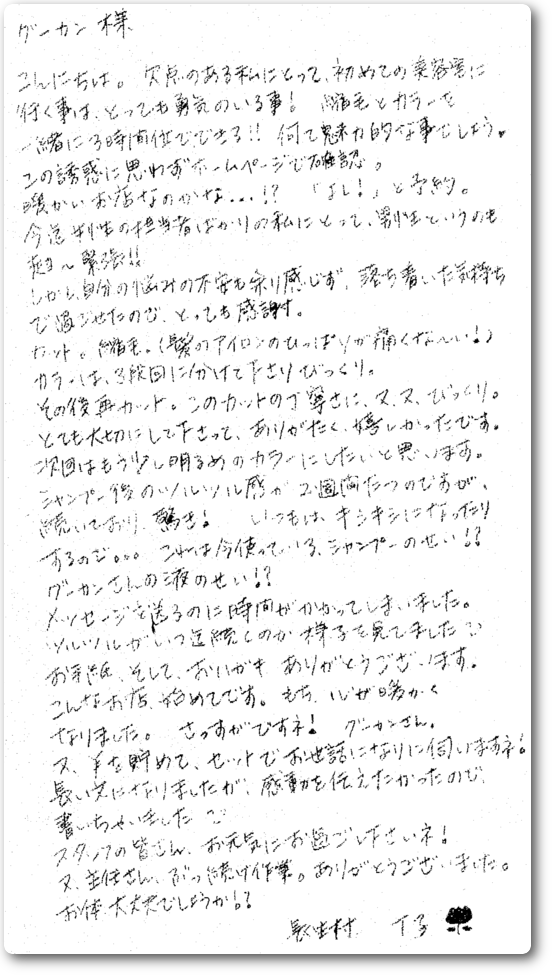 グーカン 様
こんにちは。 欠点のある私にとって、初めての美容室に
行く事は、とっても勇気のいる事! 縮毛とカラーを
一緒に3時間位でできる!! 何て魅力的な事でしょう。
この誘惑に思わずホームページで確認。
暖かいお店なのかな...!? 「よし!」と予約。
今迄女性の担当者ばかりの私にとって、男性というのも
超〜緊張!!
しかし自分の悩みの不安も余り感じず、落ち着いた気持ち
で過ごせたので、とっても感謝。
カット。縮毛。(髪のアイロンのひっぱりが痛くな〜い!)
カラーは、3段回に分けて下さりびっくり。
その後再カット。このカットの丁寧さに、又、又、びっくり。
とても大切にして下さって、ありがたく、嬉しかったです。
次回はもう少し明るめのカラーにしたいと思います。
シャンプー後のツルツル感が2週間たつのですが、
続いており、驚き! いつもは、キシキシになったり
するのに。。。 これは今使っている、シャンプーのせい!?
グーカンさんの液のせい!?
メッセージを送るのに時間がかかってしまいました。
ツルツルがいつ迄続くのか様子を見てました
お手紙、そして、おハガキ ありがとうございます。
こんなお店、始めてです。もち、心が暖かく
なりました。 さっすがですネ! グーカンさん。
又、¥を貯めて、セットでお世話になりに伺いますネ!
長い文になりましたが、感動を伝えたかったので、
書いちゃいました
スタッフの皆さん、お元気にお過ごし下さいネ!
又、主任さん、ぶっ続け作業。ありがとうございました。
お体、大丈夫でしょうか!?
長生村 T子